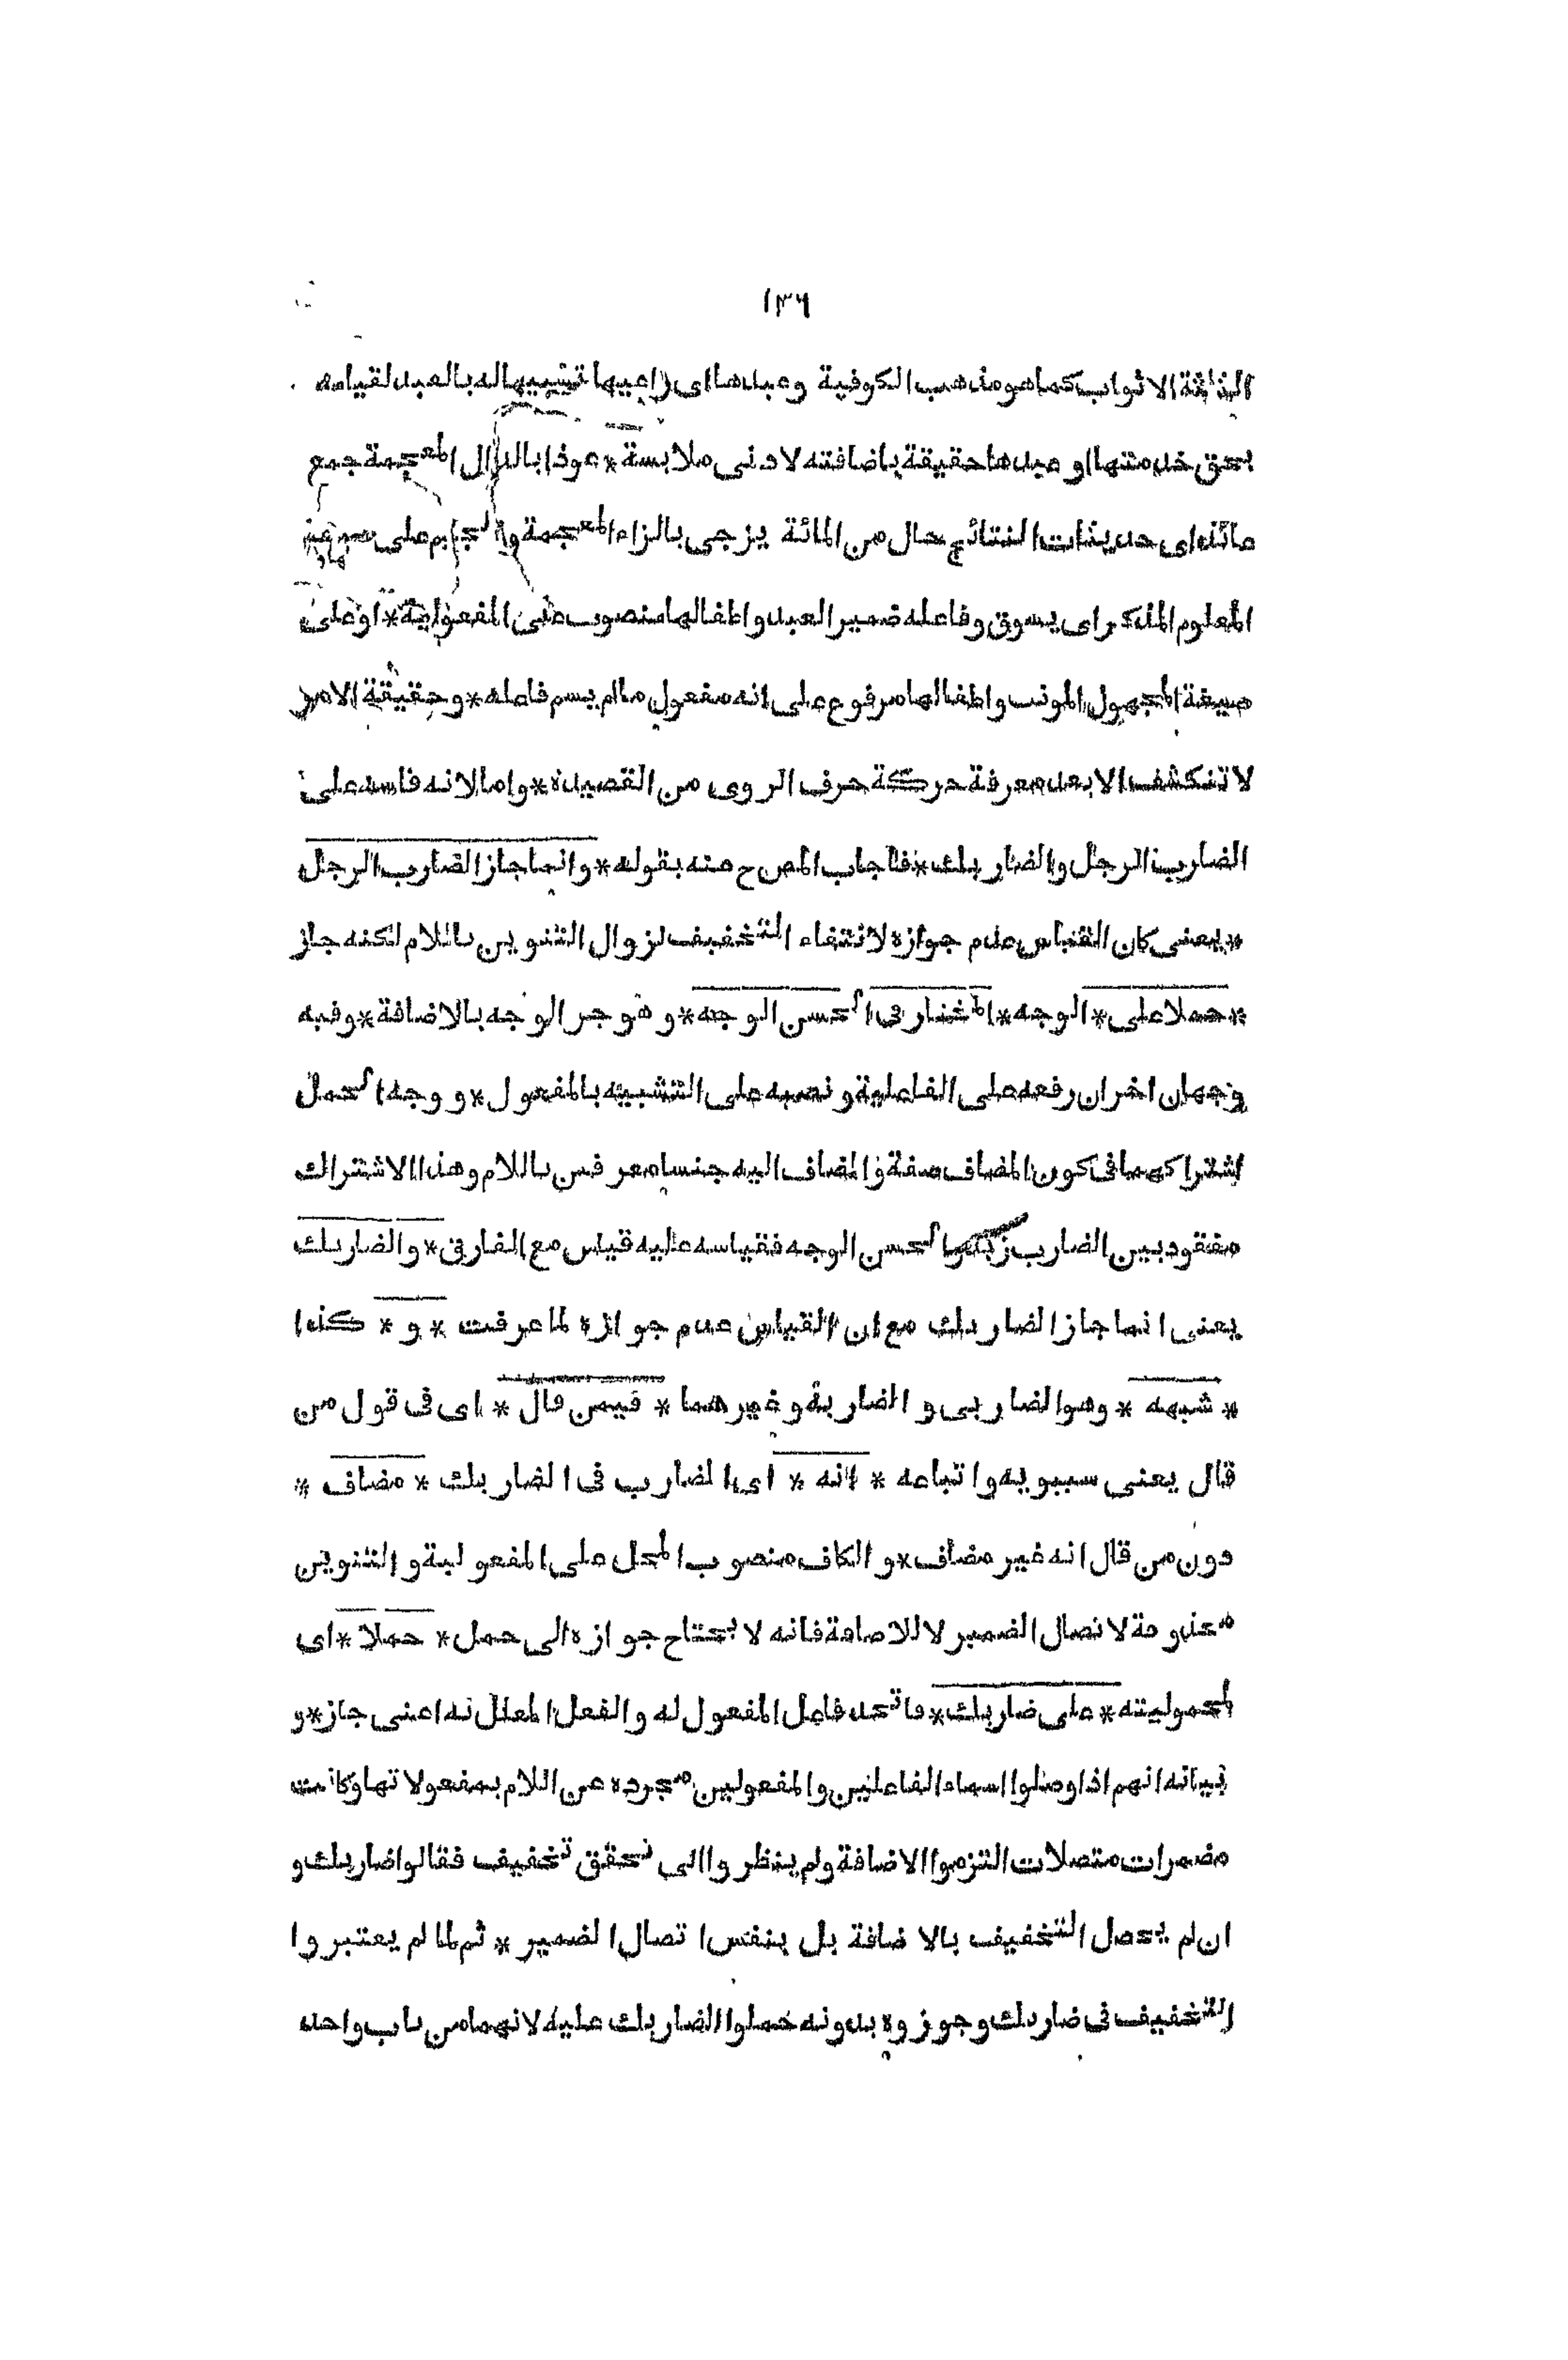 ١٣٦
الثلثة الاثواب كما هو مذهب الكوفية وعبدها اى راعيها تشبيها له بالعبد لقيامه
بحق خدمتها او عبدها حقيقة باضافته لادنى ملابسة * عوذا بالذال المعجمة جمع
عائذ اى حديثات النتائج حال من المائة يزجى بالزاء المعجمة والجيم على صيغة
المعلوم المذكر اى يسوق وفاعله ضمير العبد واطفالها منصوب على المفعولية * او على
صيغة المجهول المونث واطفالها مرفوع على انه مفعول مالم يسم فاعله * وحقيقة الامر
لا تنكشف الا بعد معرفة حركة حرف الروى من القصيدة * واما لانه قاسه على
الضارب الرجل والضاربك * فاجاب المص ح عنه بقوله * وانما جاز الضارب الرجل
* يعنى كان القياس عدم جوازه لانتفاء التخفيف لزوال التنوين باللام لكنه جاز
* حملا على * الوجه * المختار فى الحسن الوجه * وهو جر الوجه بالاضافة * وفيه
وجهان اخران رفعه على الفاعلية ونصبه على التشبيه بالمفعول * ووجه الحمل
اشتراكهما فى كون المضاف صفة والمضاف اليه جنسا معرفين باللام وهذا الاشتراك
مفقود بين الضارب زيد والحسن الوجه فقياسه عليه قياس مع الفارق * والضاربك
يعنى انما جاز الضاربك مع ان القياس عدم جوازه لما عرفت * و * كذا
* شبهه * وهو الضاربى والضاربه وغيرهما * فيمن قال * اى فى قول من
قال يعنى سيبويه واتباعه * انه * اى الضارب فى الضاربك * مضاف *
دون من قال انه غير مضاف * والكاف منصوب المحل على المفعولية والتنوين
محذوفة لاتصال الضمير لا للاضافة فانه لا يحتاج جوازه الى حمل * حملا * اى
لمحموليته * على ضاربك * فاتحد فاعل المفعول له والفعل المعلل به اعنى جاز * و
بيانه انهم اذا وصلوا اسماء الفاعلين والمفعولين مجردة عن اللام بمفعولاتها وكانت
مضمرات متصلات التزموا الاضافة ولم ينظروا الى تحقق تخفيف فقالوا ضاربك و
ان لم يحصل التخفيف بالاضافة بل بنفس اتصال الضمير * ثم لما لم يعتبروا
التخفيف فى ضاربك وجوزوه بدونه حملوا الضاربك عليه لانهما من باب واحد